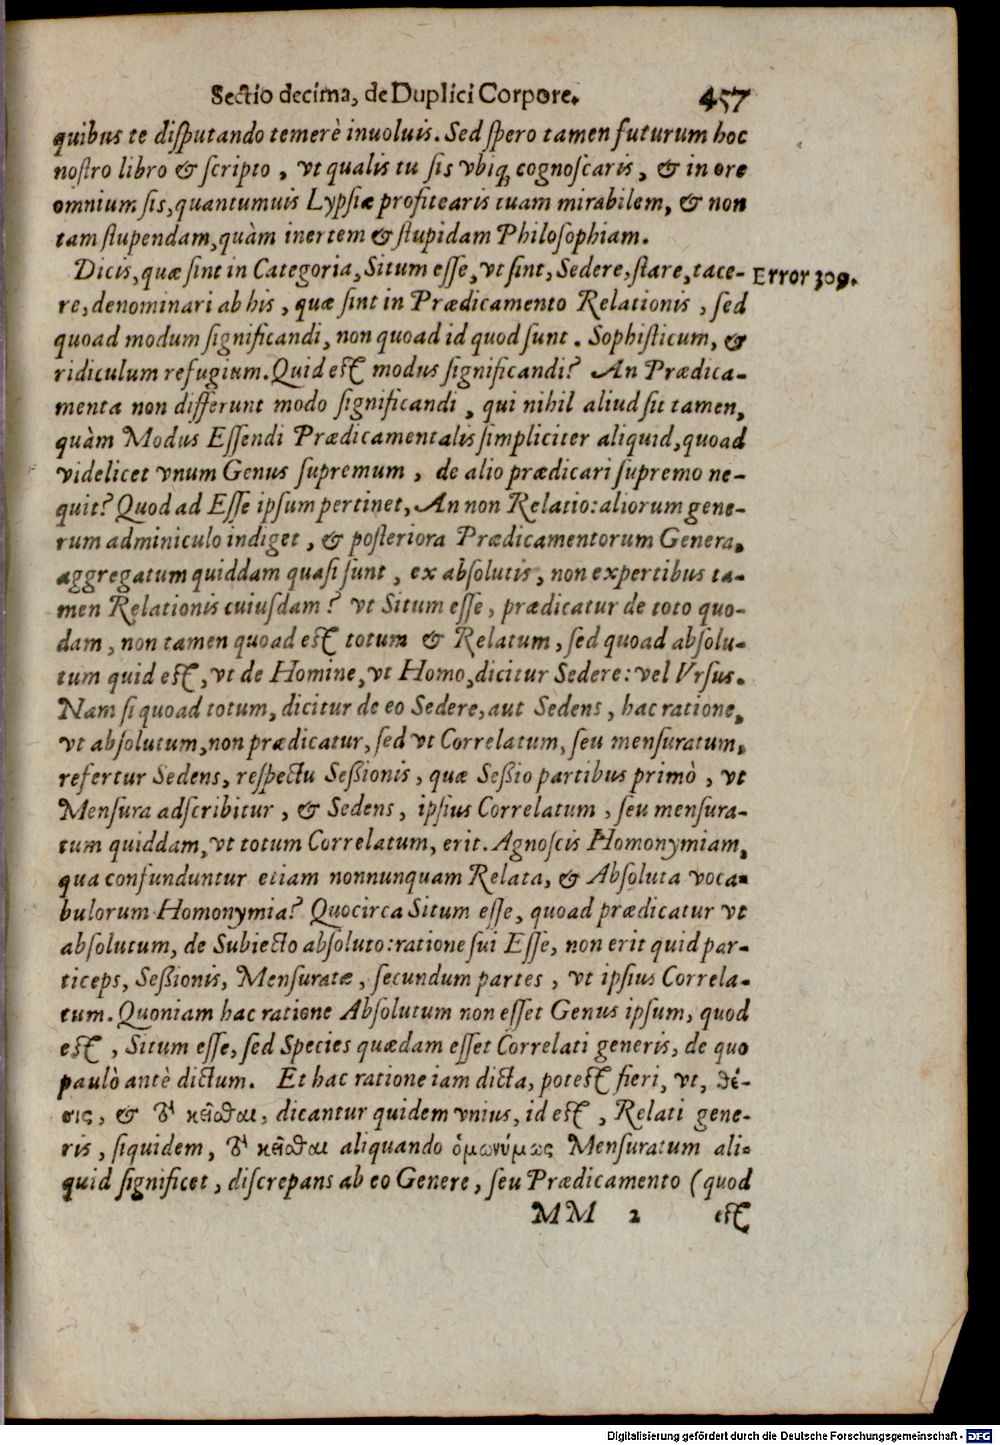 Sectio decima, de Duplici Corpore. 457
quibus te disputando temerè inuoluis. Sed spero tamen futurum hoc
nostro libro & scripto, vt qualis tu sis vbiq; cognoscaris, & in ore
omnium sis, quantumuis Lypsiæ profitearis tuam mirabilem, & non
tam stupendam, quàm inertem & stupidam Philosophiam.
Dicis, quæ sint in Categoria, Situm esse, vt sint, Sedere, stare, tace- Error 309.
re, denominari ab his, quæ sint in Prædicamento Relationis, sed
quoad modum significandi, non quoad id quod sunt. Sophisticum, &
ridiculum refugium. Quid est modus significandi? An Prædica-
menta non differunt modo significandi, qui nihil aliud sit tamen,
quàm Modus Essendi Prædicamentalis simpliciter aliquid, quoad
videlicet vnum Genus supremum, de alio prædicari supremo ne-
quit? Quod ad Esse ipsum pertinet, An non Relatio: aliorum gene-
rum adminiculo indiget, & posteriora Prædicamentorum Genera,
aggregatum quiddam quasi sunt, ex absolutis, non expertibus ta-
men Relationis cuiusdam? vt Situm esse, prædicatur de toto quo-
dam, non tamen quoad est totum & Relatum, sed quoad absolu-
tum quid est, vt de Homine, vt Homo, dicitur Sedere: vel Vrsus.
Nam si quoad totum, dicitur de eo Sedere, aut Sedens, hac ratione,
vt absolutum, non prædicatur, sed vt Correlatum, seu mensuratum,
refertur Sedens, respectu Sessionis, quæ Sessio partibus primò, vt
Mensura adscribitur, & Sedens, ipsius Correlatum, seu mensura-
tum quiddam, vt totum Correlatum, erit. Agnoscis Homonymiam,
qua confunduntur etiam nonnunquam Relata, & Absoluta voca-
bulorum Homonymia? Quocirca Situm esse, quoad prædicatur vt
absolutum, de Subiecto absoluto: ratione sui Esse, non erit quid par-
ticeps, Sessionis, Mensuratæ, secundum partes, vt ipsius Correla-
tum. Quoniam hac ratione Absolutum non esset Genus ipsum, quod
est, Situm esse, sed Species quædam esset Correlati generis, de quo
paulò antè dictum. Et hac ratione iam dicta, potest fieri, vt, θέ-
σις, & τὸ κεῖσθαι, dicantur quidem vnius, id est, Relati gene-
ris, siquidem, τὸ κεῖσθαι aliquando ὁμωνύμως Mensuratum ali-
quid significet, discrepans ab eo Genere, seu Prædicamento (quod
MM 2 est
Digitalisierung gefördert durch die Deutsche Forschungsgemeinschaft - DFG